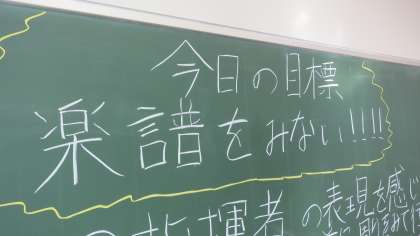 今日の目標
楽譜をみない!!!!
の指揮者の表現を感じ